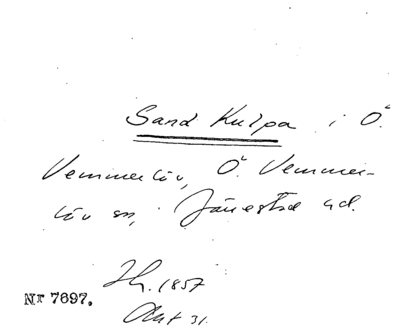 Sand Kulpa i Ö.
Vemmerlöv, Ö. Vemmer-
löv sn, Järrestad hd.
1857
Nr 7697.
Akt 31.